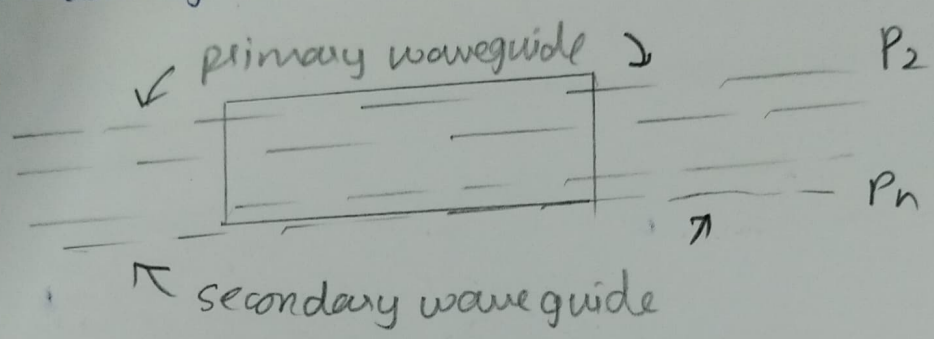 primary waveguide
P2
Pn
secondary waveguide